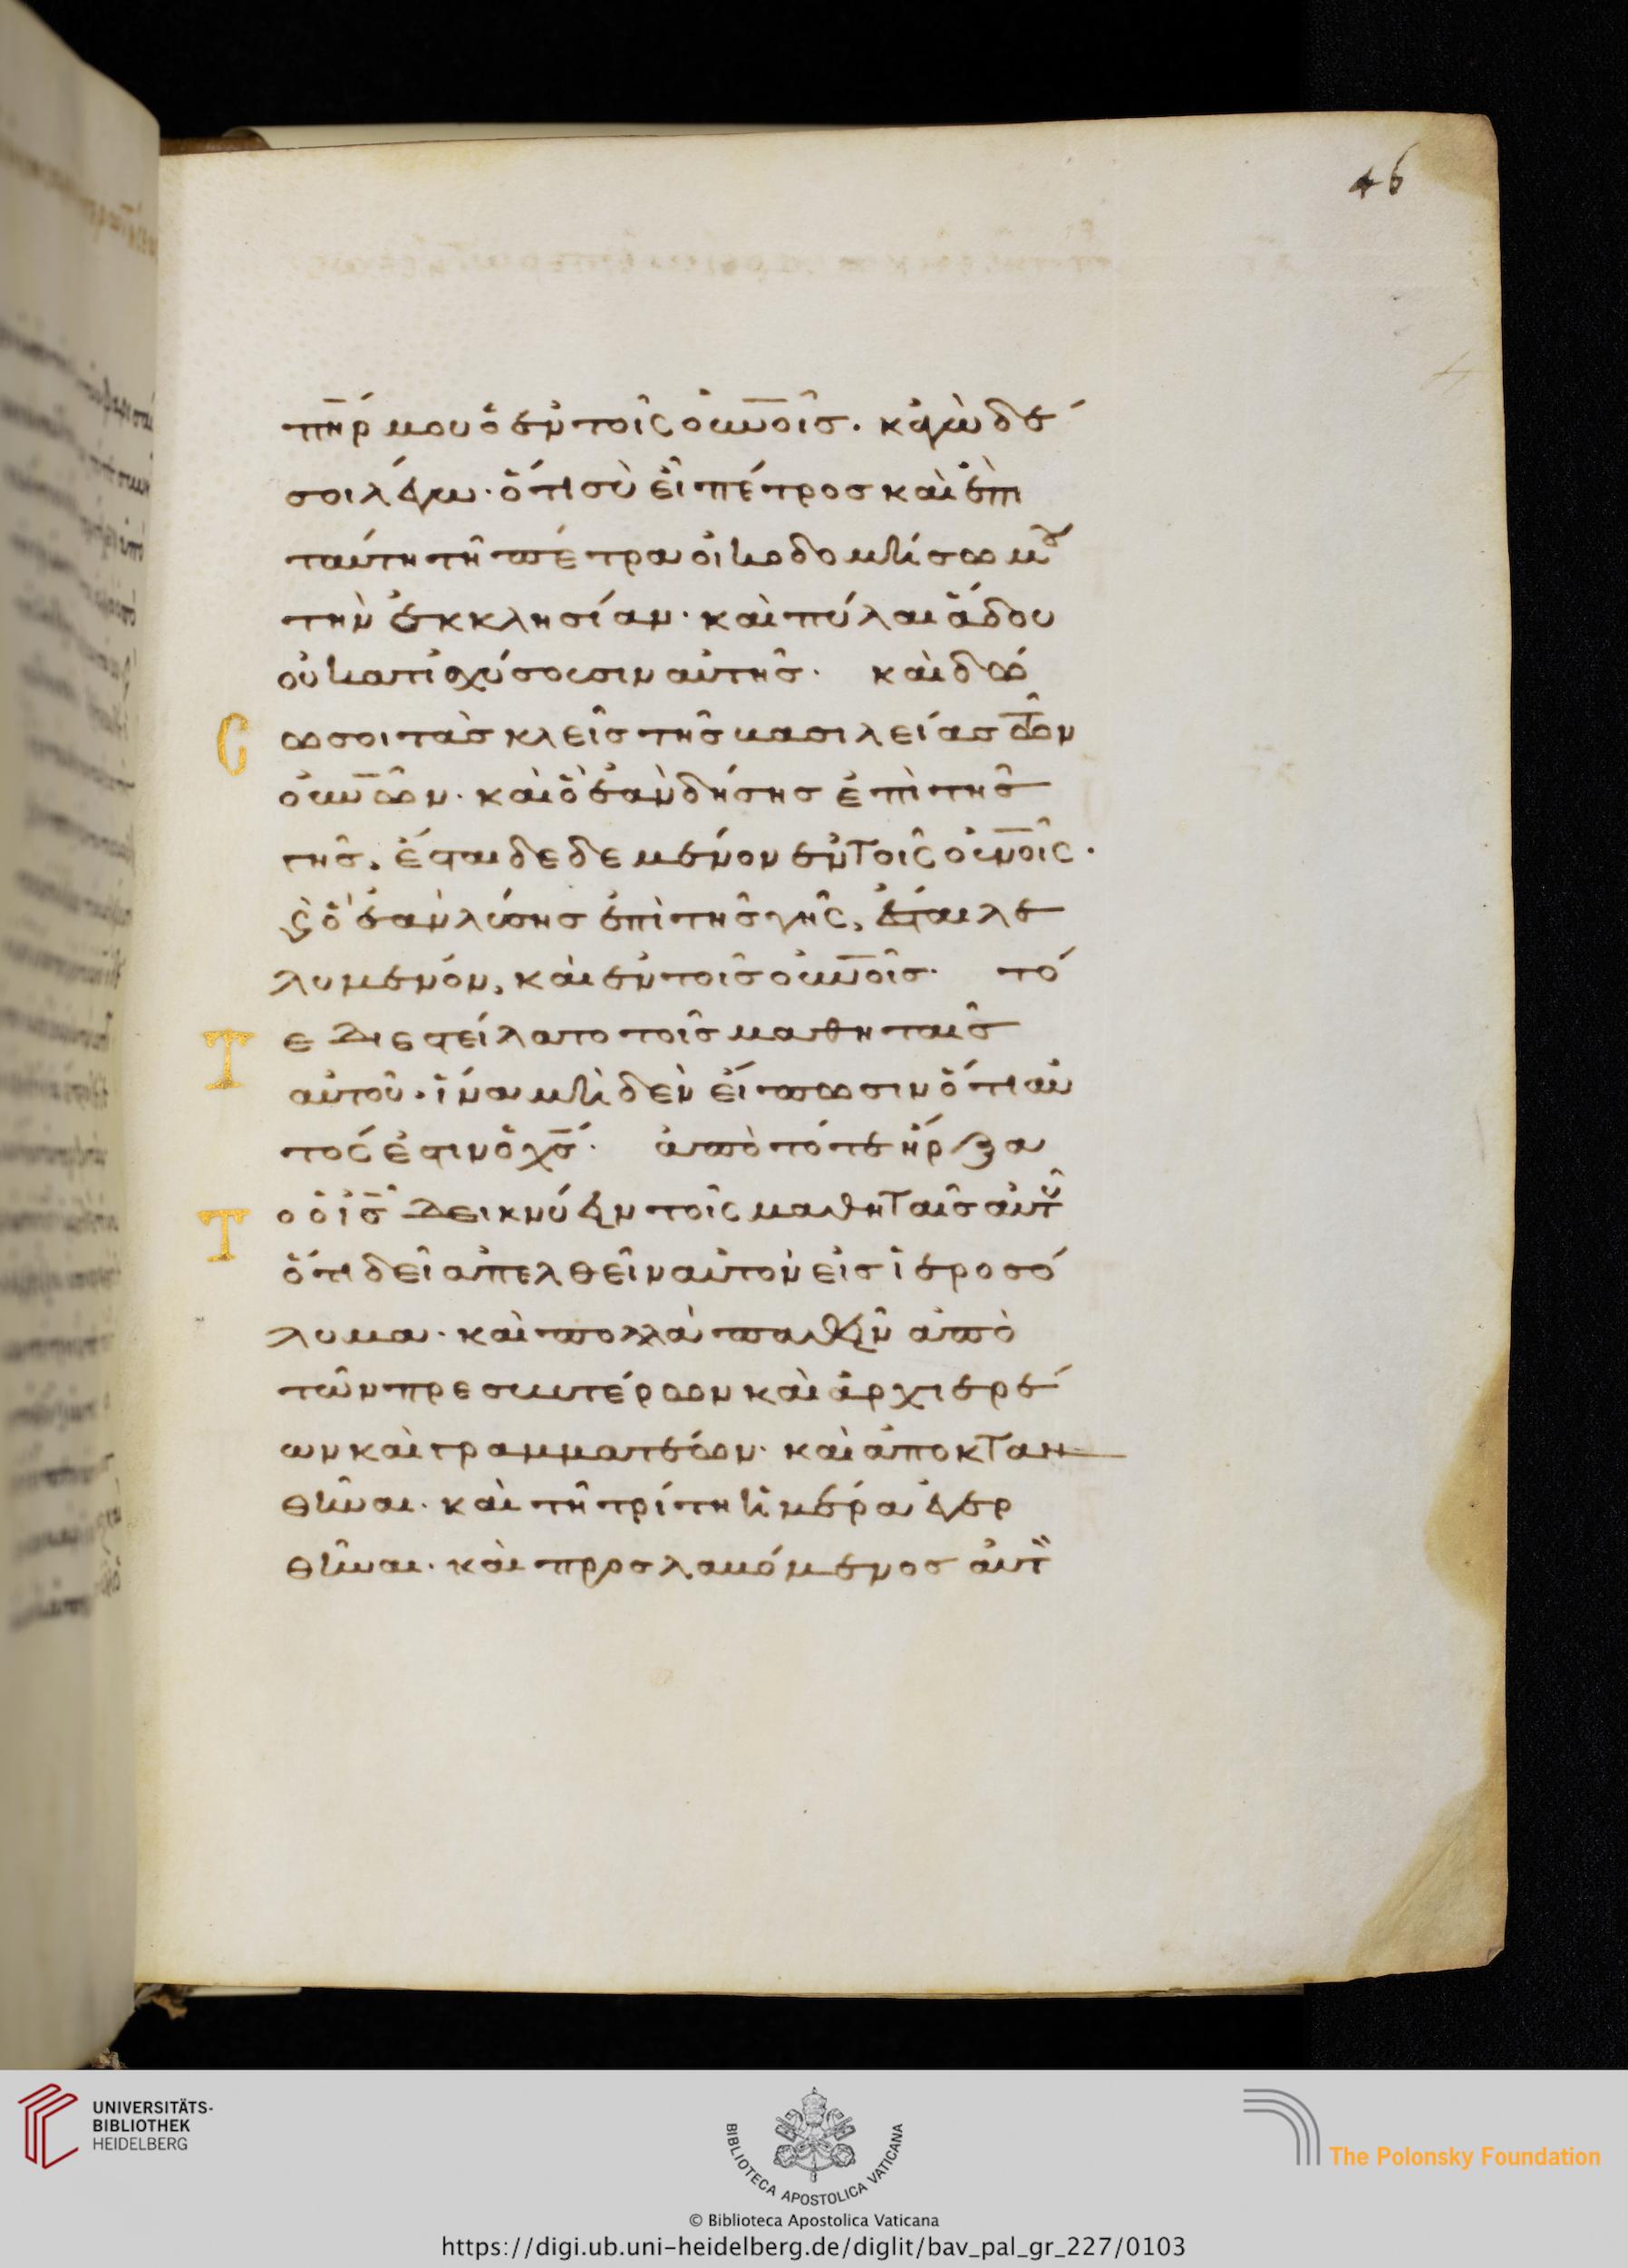 46
πη̅ρ́ μου ὁ ἐν τοῖς οὐν̅οῖς· κἀγὼ δέ
σοι λέγω· ὅτι σὺ εἶ πέτρος καὶ ἐπὶ
ταύτη τῆ πέτρα οἰκοδομήσω μου
τὴν ἐκκλησίαν· καὶ πύλαι ἅδου
οὐ κατισχύσουσιν αὐτῆς· καὶ δώ
σω σοι τὰς κλεῖς τῆς βασιλείας τῶν
οὐν̅ῶν· καὶ ὃ ἐὰν δήσης ἐπὶ τῆς
γῆς, ἔσται δεδεμένον ἐν τοῖς οὐν̅οῖς·
ϗ̀ ὃ ἐὰν λύσης ἐπὶ τῆς γῆς, ἔσται λε
λυμένον, καὶ ἐν τοῖς οὐν̅οῖς· τό
Τε διεστείλατο τοῖς μαθηταῖς
αὐτοῦ· ἵνα μηδὲν εἴπωσιν ὅτι αὐ
τός ἐστιν ὁ χς̅· ἀπὸ τότε ἤρξα
Το ὁ ις̅ δεικνύειν τοῖς μαθηταῖς αὐτοῦ
ὅτι δεῖ ἀπελθεῖν αὐτὸν εἰς ἱεροσό
λυμα· καὶ πολλὰ παθεῖν ἀπὸ
τῶν πρεσβυτέρων καὶ ἀρχιερέ
ων καὶ γραμματέων· καὶ ἀποκταν
θῆναι· καὶ τῆ τρίτη ἡμέρα ἐγερ
θῆναι· καὶ προσλαβόμενος αὐτὸ
UNIVERSITÄTS-
BIBLIOTHEK
HEIDELBERG
BIBLIOTECA APOSTOLICA VATICANA
The Polonsky Foundation
© Biblioteca Apostolica Vaticana
https://digi.ub.uni-heidelberg.de/diglit/bav_pal_gr_227/0103